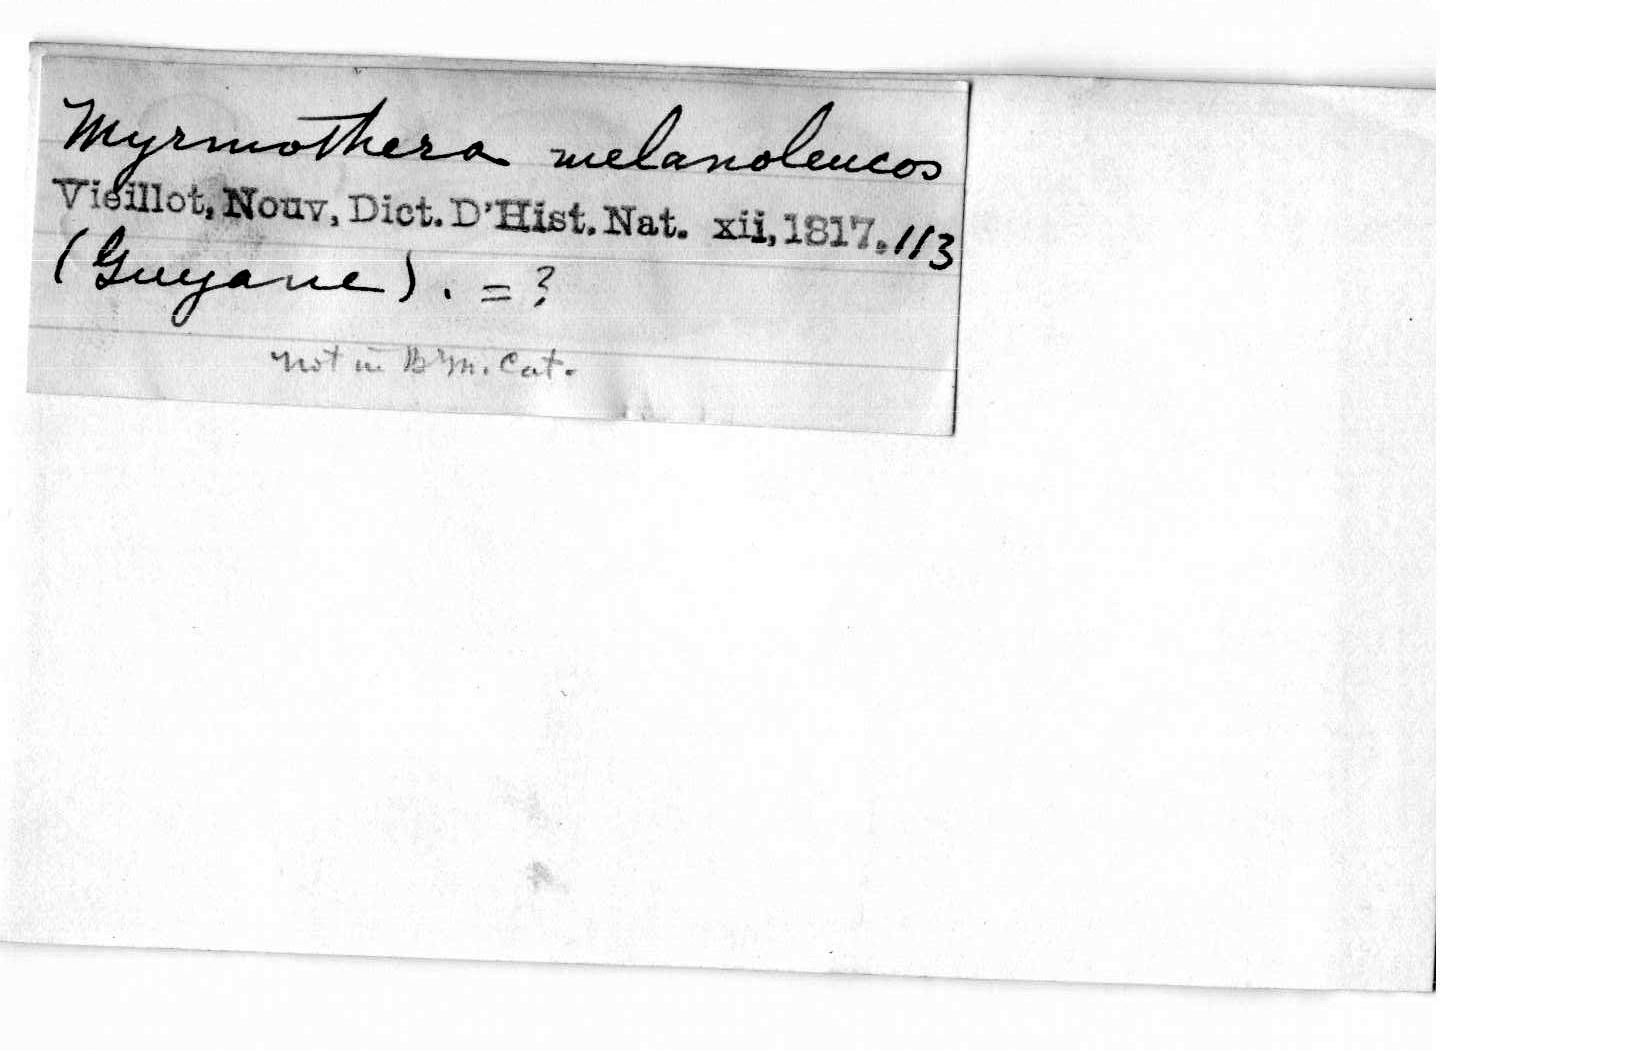 Myrmothera melanoleucos
Vieillot, Nouv, Dict. D'Hist. Nat. xii, 1817. 113
(Guyane). = ?
not in B.M. Cat.